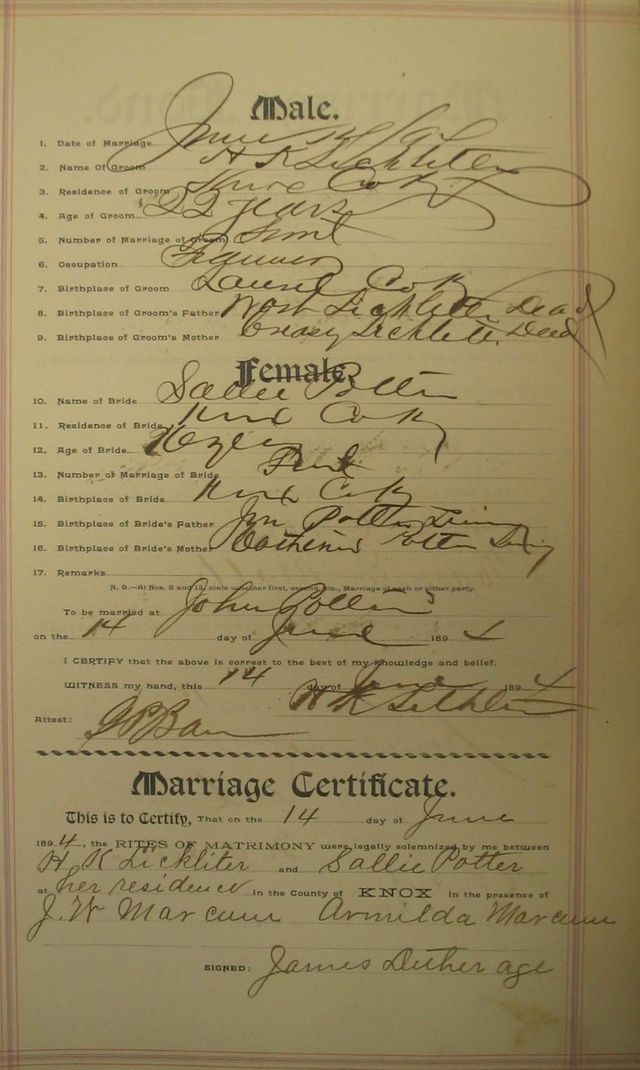 Male.
1. Date of Marriage June 14/94
2. Name Of Groom H K Lickliter
3. Residence of Groom Knox Co Ky
4. Age of Groom 22 years
5. Number of Marriage of Groom First
6. Occupation Farmer
7. Birthplace of Groom Laurel Co Ky
8. Birthplace of Groom's Father Wash Lickliter Dead
9. Birthplace of Groom's Mother Lickliter Dead
Female.
10. Name of Bride Sallie Potter
11. Residence of Bride Knox Co Ky
12. Age of Bride
13. Number of Marriage of Bride First
14. Birthplace of Bride Knox Co Ky
15. Birthplace of Bride's Father Jno Potter Living
16. Birthplace of Bride's Mother Catherine Potter Living
17. Remarks
N. B.—At Nos. 5 and 13, state whether first, second, etc., Marriage of each or either party.
To be married at John Potters
on the 14 day of June 1894
I CERTIFY that the above is correct to the best of my knowledge and belief.
WITNESS my hand, this 14 day of June 1894
H K Lickliter
Attest:
Marriage Certificate.
This is to Certify, That on the 14 day of June
1894, the RITES OF MATRIMONY were legally solemnized by me between
H K Lickliter and Sallie Potter
at her residence in the County of KNOX in the presence of
J. W Marcum Armilda Marcum
SIGNED: James Detherage